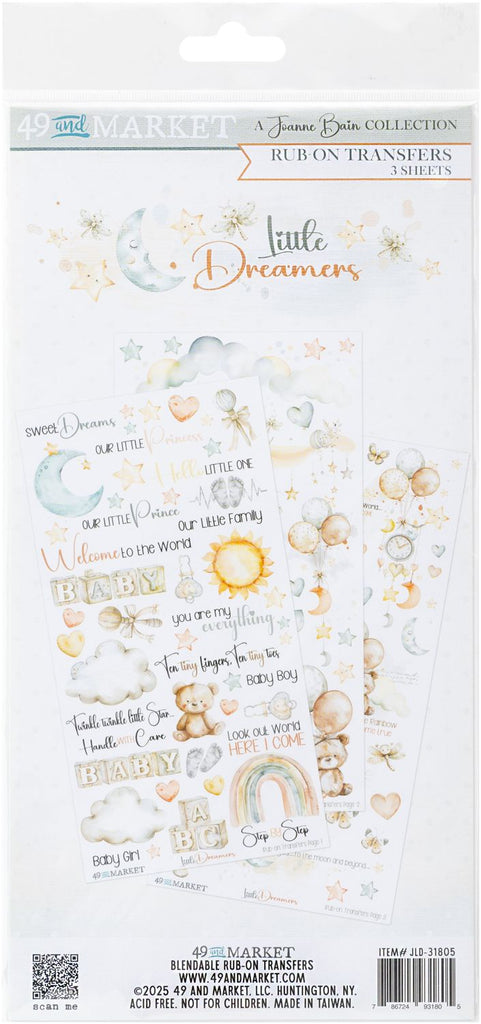 49 and MARKET
A Joanne Bain COLLECTION
RUB-ON TRANSFERS
3 SHEETS
Little
Dreamers
sweet Dreams
OUR LITTLE Princess
Hello LITTLE ONE
OUR LITTLE Prince
Our Little Family
Welcome to the World
BABY
you are my
everything
Ten tiny fingers, Ten tiny toes
Baby Boy
Twinkle twinkle little Star...
Handle WITH Care
Look out World
HERE I COME
BABY
A
B C
Step By Step
Baby Girl
Little Dreamers
Rub-on Transfers Page 1
49 and MARKET
Transfers Page 2
49 and MARKET
Little Dreamers
World...
OME
e Rainbow
me true
to the moon and beyond...
Rub-on Transfers Page 3
scan me
49 and MARKET
BLENDABLE RUB-ON TRANSFERS
WWW.49ANDMARKET.COM
©2025 49 AND MARKET, LLC. HUNTINGTON, NY.
ACID FREE. NOT FOR CHILDREN. MADE IN TAIWAN.
ITEM# JLD-31805
7 86724 93180 5